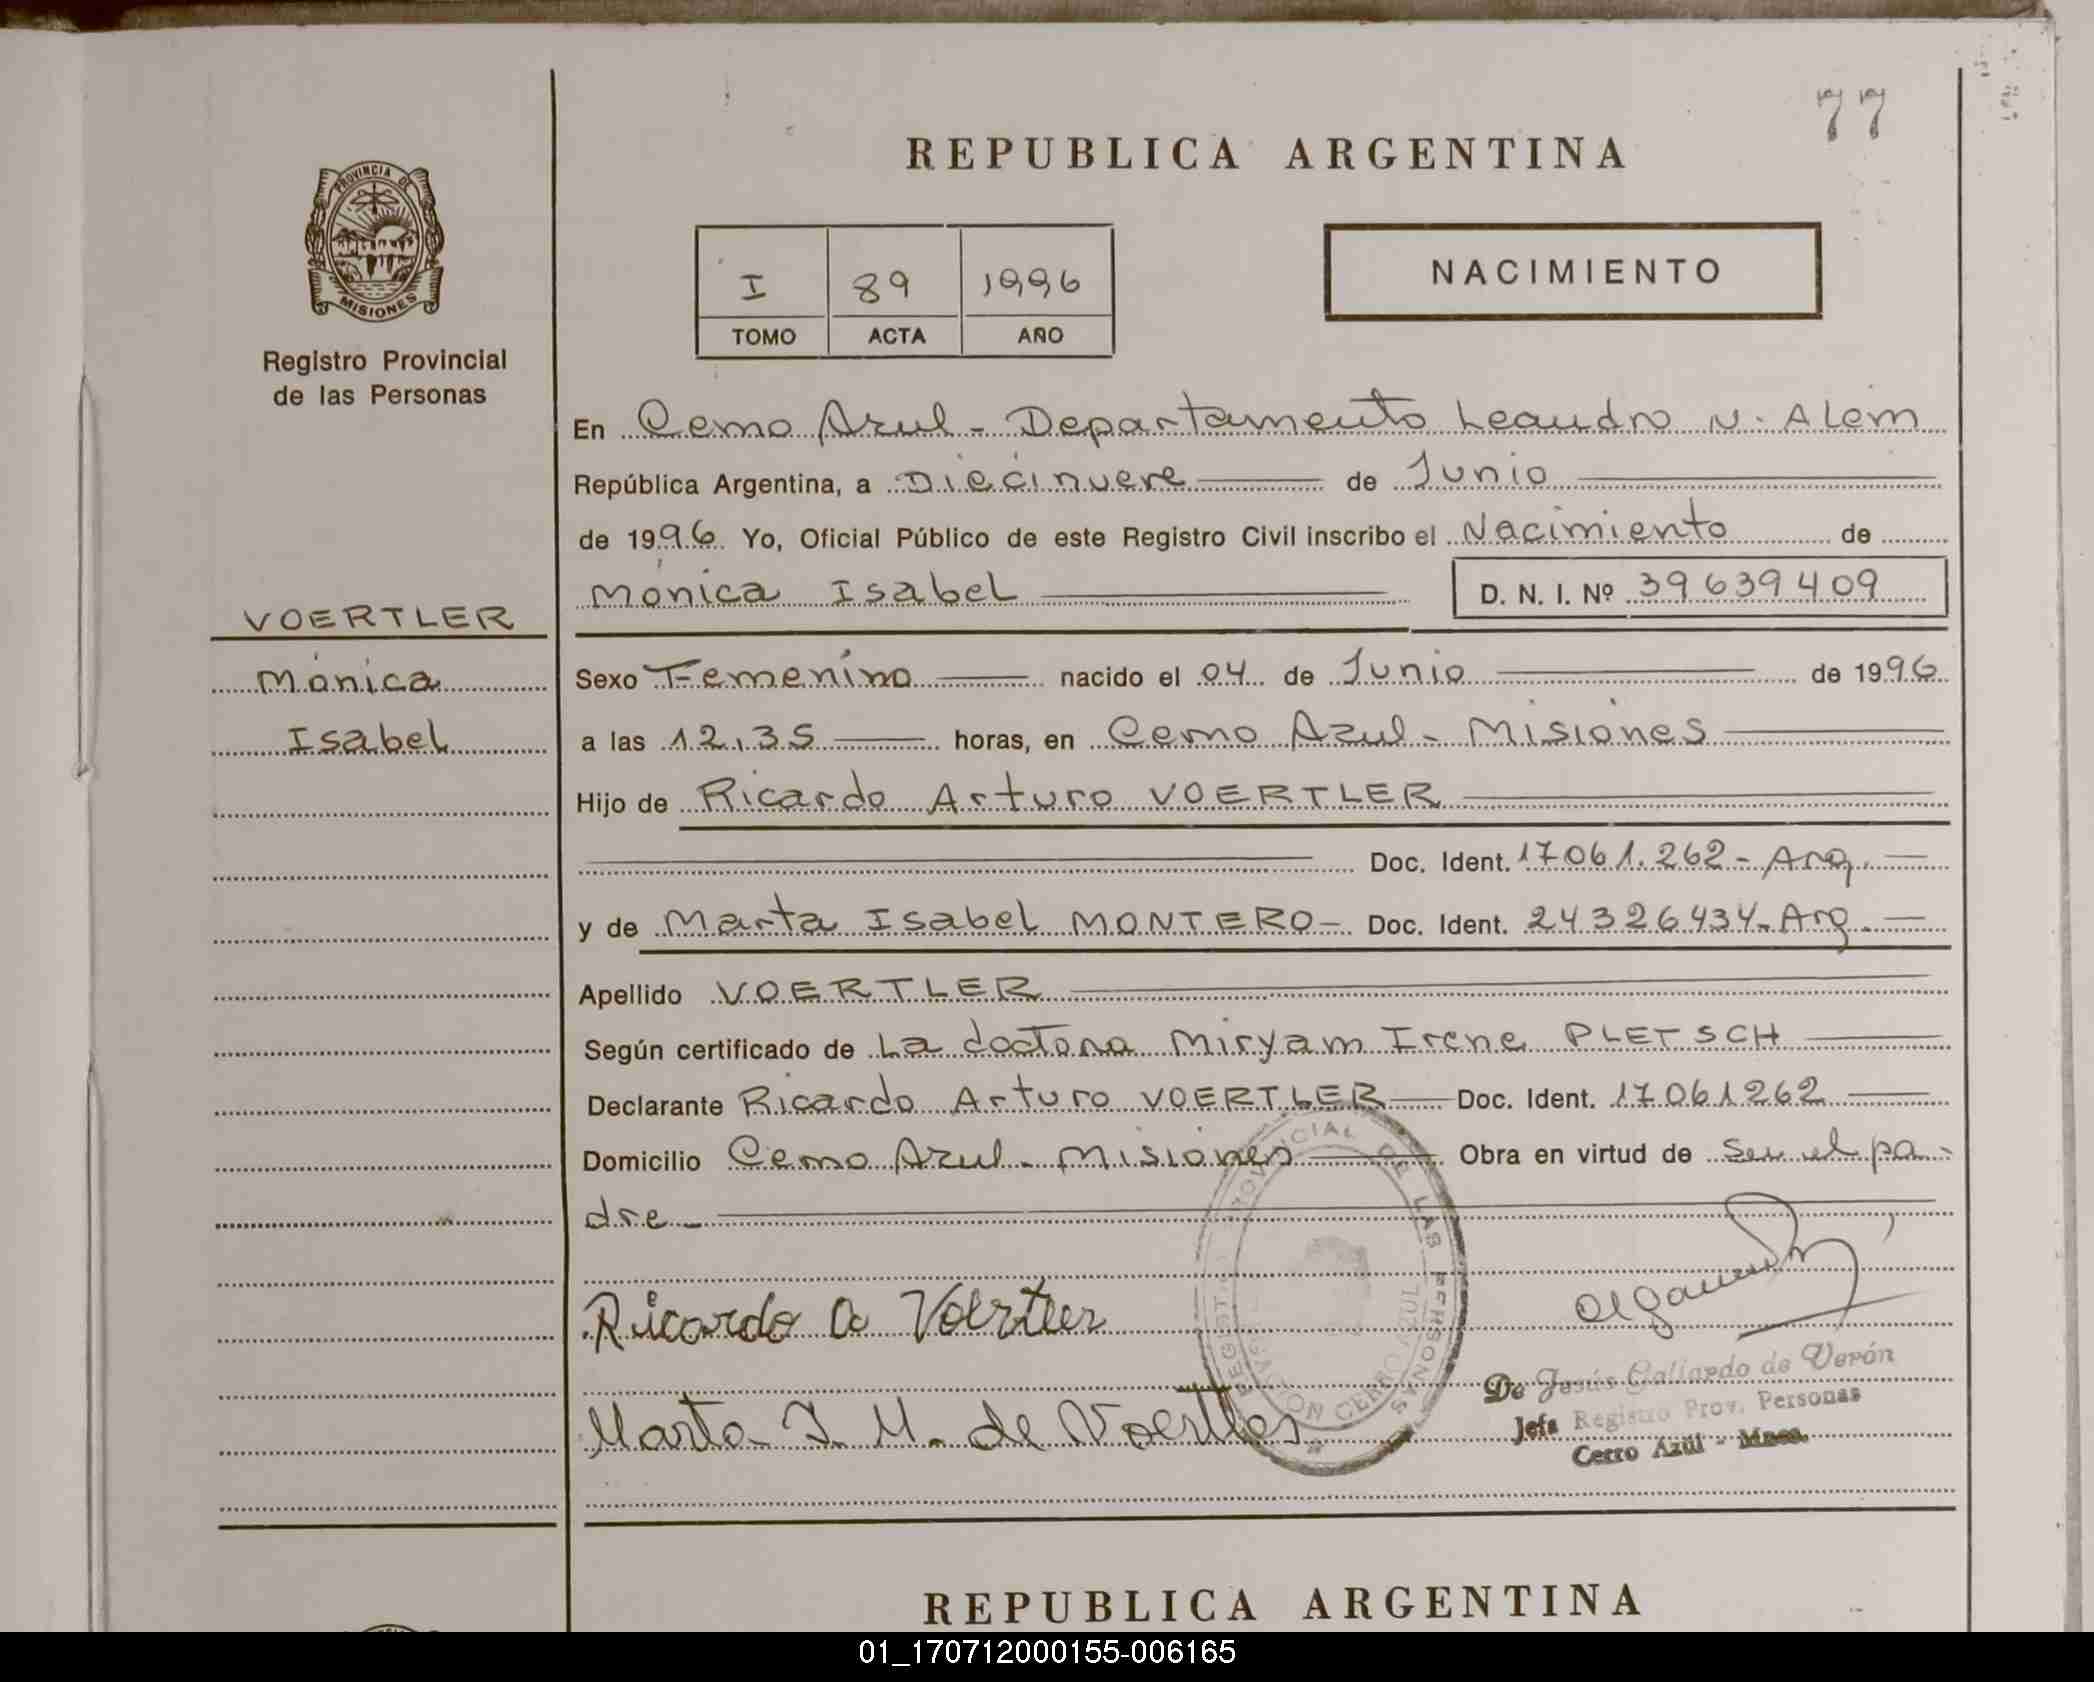 77
REPUBLICA ARGENTINA
PROVINCIA DE
MISIONES
Registro Provincial
de las Personas
I 89 1996
TOMO ACTA AÑO
NACIMIENTO
En Cerro Azul - Departamento Leandro N. Alem
República Argentina, a Diecinueve de Junio
de 1996 Yo, Oficial Público de este Registro Civil inscribo el Nacimiento de
Mónica Isabel D. N. I. Nº 39639409
VOERTLER
Mónica
Isabel
Sexo Femenino nacido el 04 de Junio de 1996
a las 12,35 horas, en Cerro Azul - Misiones
Hijo de Ricardo Arturo VOERTLER
Doc. Ident. 17061.262 - Arg.
y de Marta Isabel MONTERO - Doc. Ident. 24326434 - Arg.
Apellido VOERTLER
Según certificado de La doctora Miryam Irene PLETSCH
Declarante Ricardo Arturo VOERTLER Doc. Ident. 17061262
Domicilio Cerro Azul - Misiones Obra en virtud de Ser el pa-
dre -
Ricardo A Voertler
Marta I. M. de Voertler
PROVINCIAL DE LAS PERSONAS
CERRO AZUL
De Jesús Gallardo de Verón
Jefa Registro Prov. Personas
Cerro Azul - Mnes.
REPUBLICA ARGENTINA
01_170712000155-006165